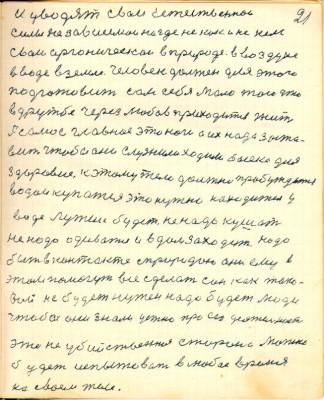 21
и уводят свои естественной
силы независимой нигде не ком и не кем
своей органической в природе. в воздухе
в воде в земле. человек должен для этого
подготовить сам себя мало того это
в дружбе через любов приходится жить
а самое главное это ноги а их надо заста-
вить чтобы они служили ходили босеко для
здоровие. к этому тело должно пробуждаться
водой купатся это нужно находится у
воде лутше будет ненадо кушать
ненадо одеватся и в дом заходить надо
быть в контакте с природою они ему в
этом помогут все сделат сон как тако-
вой не будет нужен надо будет люди
чтобы они знали устно про ево деятельност
это не убийственная сторона можно
будет испытовать в любое время
на своем теле.